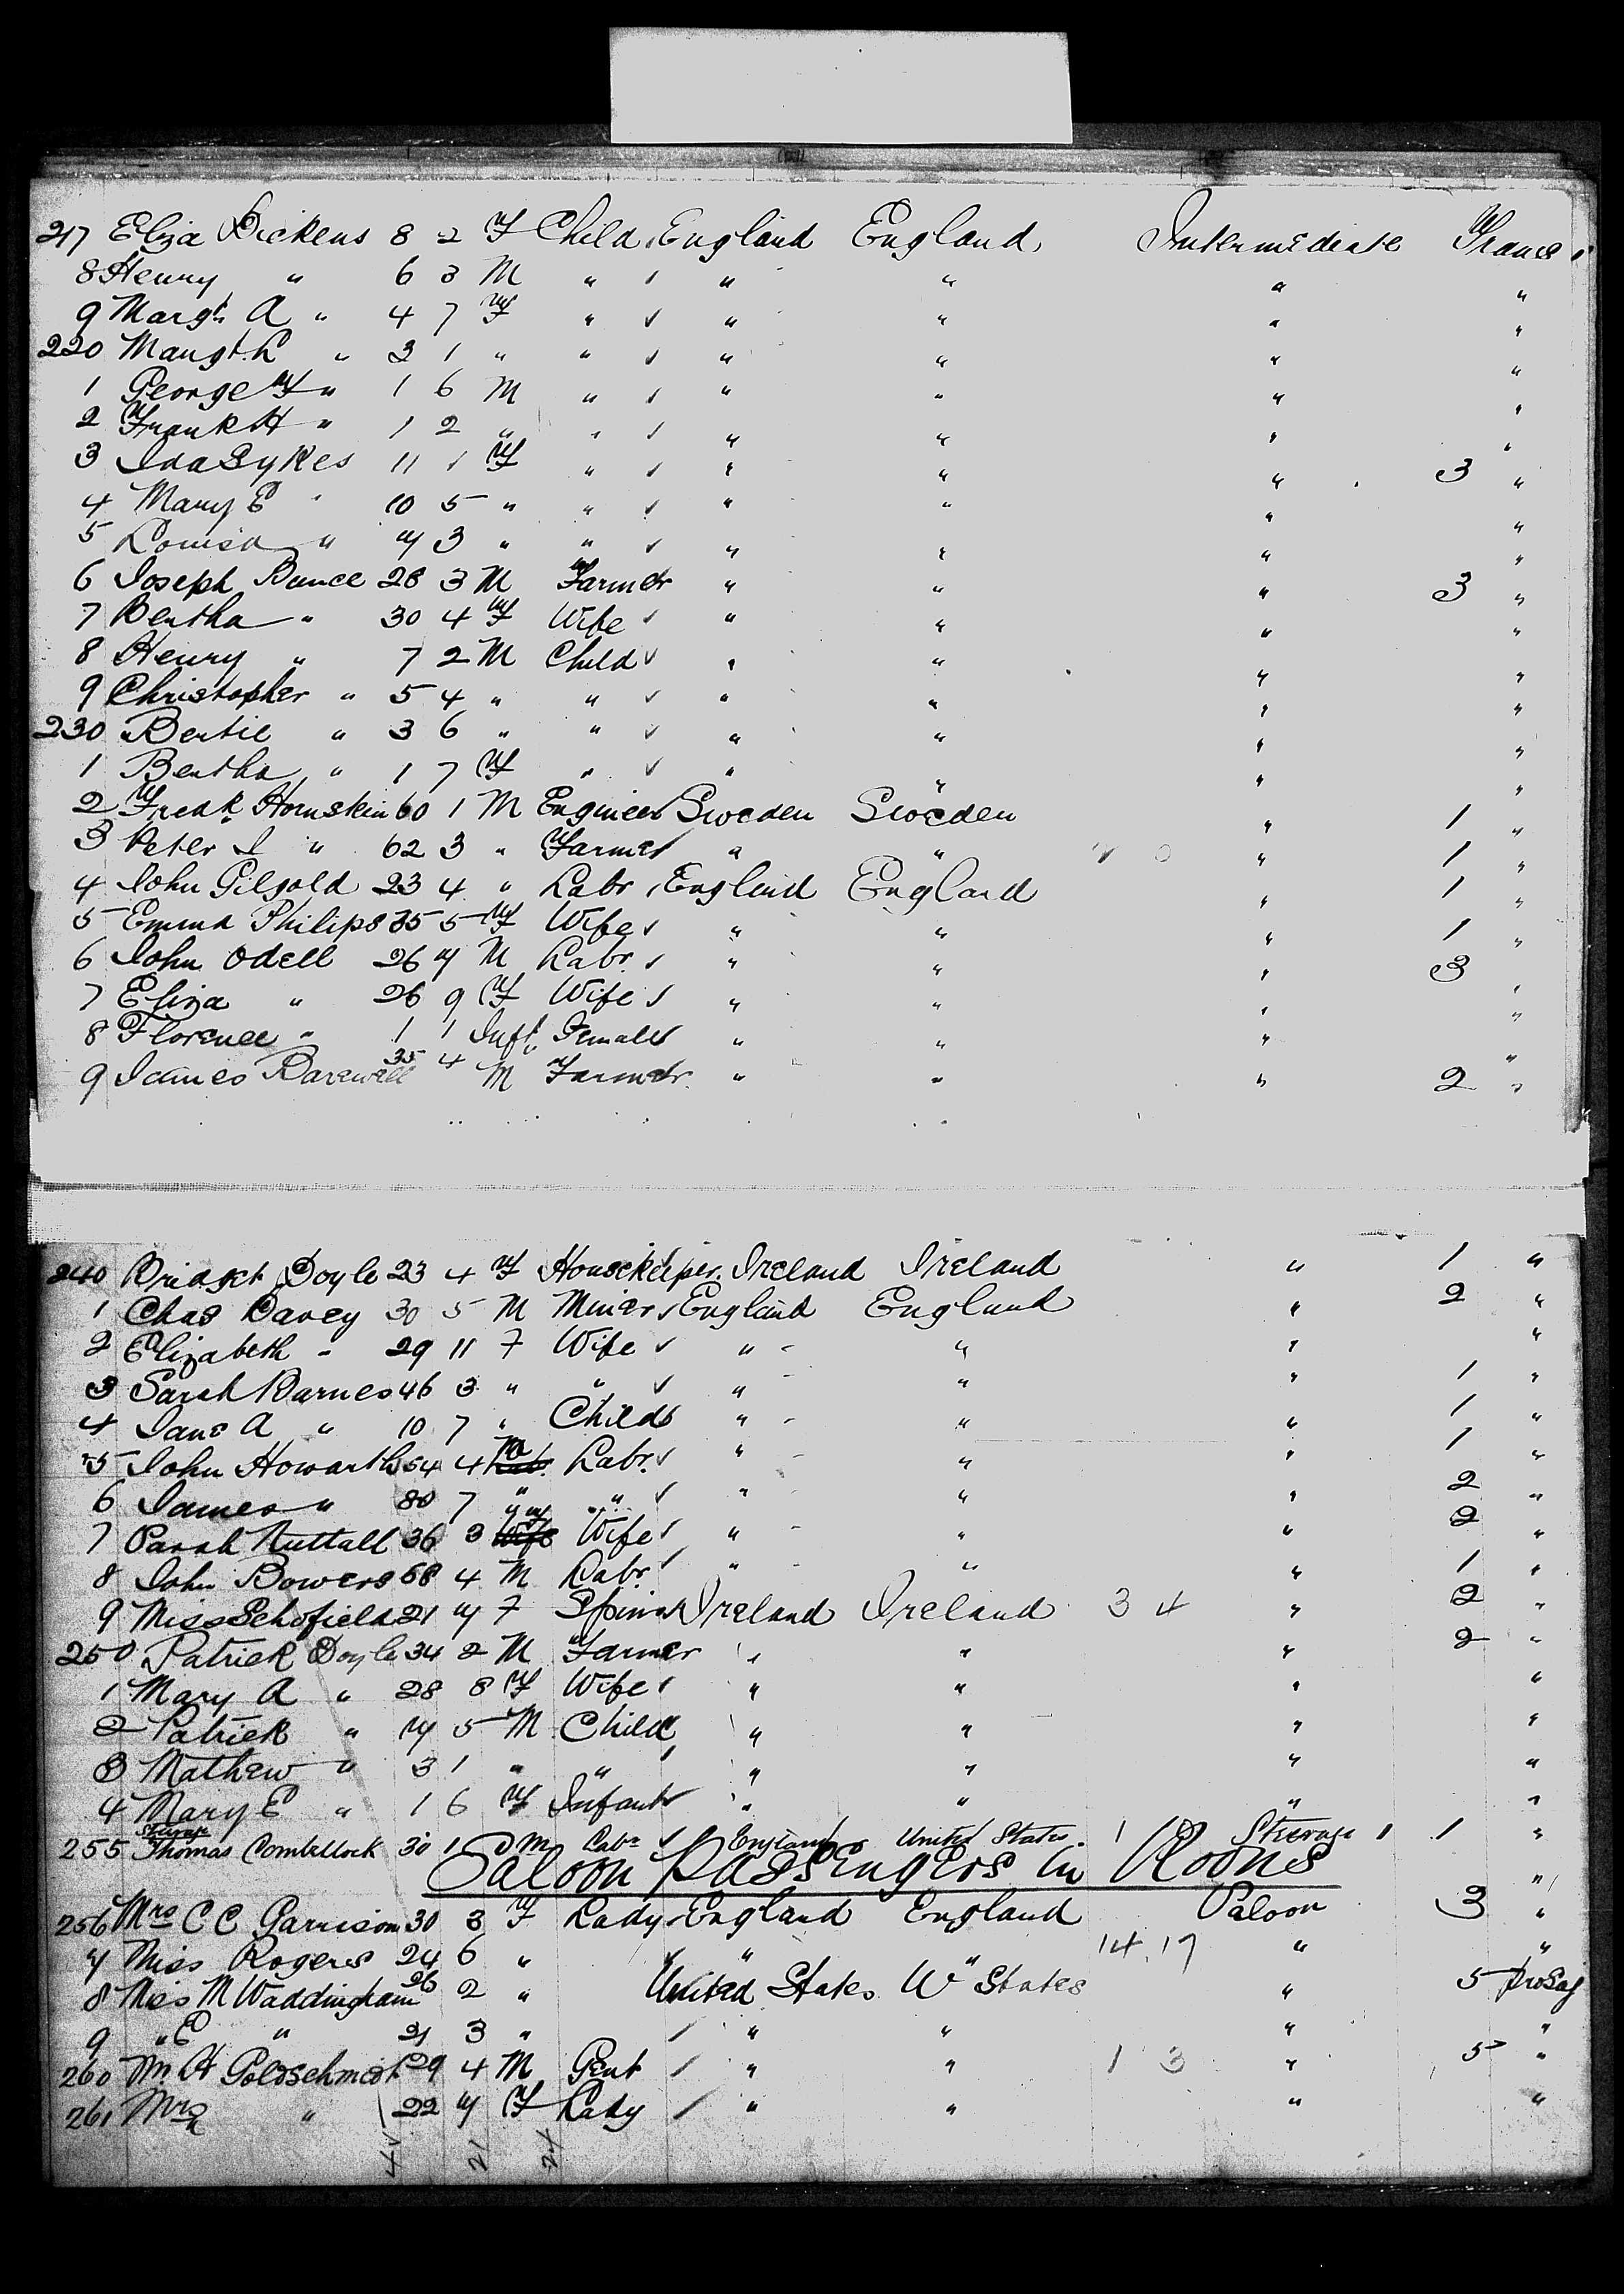 217 Eliza Dickens 8 2 F Child England England Intermediate Transt
8 Henry " 6 3 M " " " " "
9 Margt A " 4 7 F " " " " "
220 Maugt. L " 3 1 " " " " " "
1 George F " 1 6 M " " " " "
2 Frank H " 1 2 " " " " " "
3 Ida Sykes 11 1 F " " " " 3 "
4 Mary E " 10 5 " " " " " "
5 Louisa " 7 3 " " " " " "
6 Joseph Bunce 28 3 M Farmer " " " 3 "
7 Bertha " 30 4 F Wife " " " "
8 Henry " 7 2 M Child " " " "
9 Christopher " 5 4 " " " " " "
230 Bertie " 3 6 " " " " " "
1 Bertha " 1 7 F " " " " "
2 Fredk Hornskin 60 1 M Engineer Sweden Sweden " 1 "
3 Peter J " 62 3 " Farmer " " " 1 "
4 John Gilgold 23 4 " Labr England England " 1 "
5 Emma Philips 35 5 F Wife " " " 1 "
6 John Odell 26 7 M Labr. " " " 3 "
7 Eliza " 26 9 F Wife " " " "
8 Florence " 1 1 Inft. Female " " " "
9 James Barewell 35 4 M Farmer " " " 2 "
240 Bridget Doyle 23 4 F Housekeeper. Ireland Ireland " 1 "
1 Chas Davey 30 5 M Miner England England " 2 "
2 Elizabeth " 29 11 F Wife " " " "
3 Sarah Barnes 46 3 " " " " " 1 "
4 Jane A " 10 7 " Child " " " 1 "
5 John Howarth 54 4 M Labr. " " " 1 "
6 James " 80 7 " " " " " 2 "
7 Sarah Nuttall 36 3 F Wife " " " 2 "
8 John Bowers 68 4 M Labr. " " " 1 "
9 Miss Schofield 21 7 F Spinst Ireland Ireland 3 4 " 2 "
250 Patrick Doyle 34 2 M Farmer " " " 2 "
1 Mary A " 28 8 F Wife " " " "
2 Patrick " 7 5 M Child " " " "
3 Mathew " 3 1 " " " " " "
4 Mary E " 1 6 F Infant " " " "
Steerage
255 Thomas Combellock 30 1 M Labr England United States. 1 Steerage 1 1 "
Saloon Passengers in Rooms
256 Mrs C C Garrison 30 3 F Lady England England Saloon 3 "
7 Miss Rogers 24 6 " " " 14.17 " "
8 Miss M Waddingham 26 2 " United States Ud States " 5
9 " E " 21 3 " " " " "
260 Mr H Goldschmidt 29 4 M Gent " " 1 3 " 5 "
261 Mrs " 22 7 F Lady " " " "
41 21 24